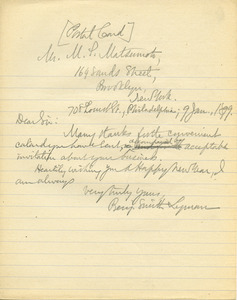 [Postal Card]
Mr. M. S. Matsumoto,
169 Sands Street,
Brooklyn,
New York.
708 Locust St., Philadelphia; 9 Jan., 1899.
Dear Sir:
Many thanks for the convenient
calendar you have sent, accompanied by acceptable
invitation about your business.
Heartily wishing you a Happy New Year, I
am always
Very truly yours,
Benj. Smith Lyman